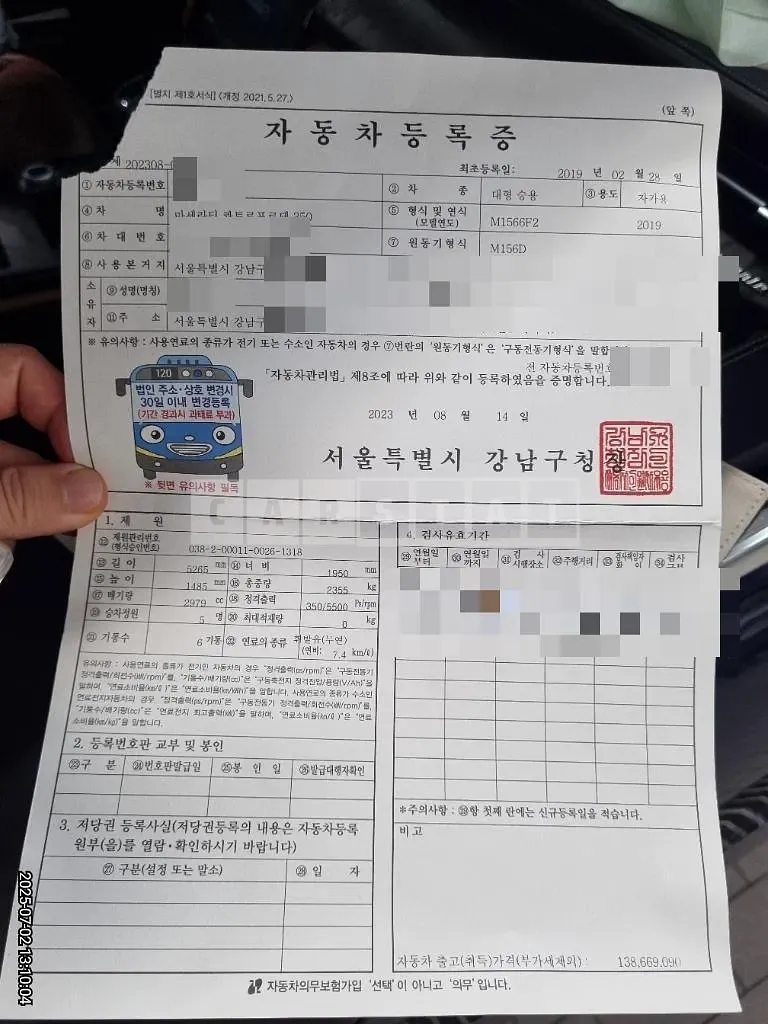 [별지 제1호서식] <개정 2021.5.27.>
(앞 쪽)
자 동 차 등 록 증
제 202308-
최초등록일: 2019 년 02 월 28 일
① 자동차등록번호
② 차 종 대형 승용 ③ 용도 자가용
④ 차 명 마세라티 콰트로포르테 350
⑤ 형식 및 연식 (모델연도) M1566F2 2019
⑥ 차 대 번 호
⑦ 원동기형식 M156D
⑧ 사 용 본 거 지 서울특별시 강남구
소 유 자
⑨ 성명(명칭)
⑪ 주 소 서울특별시 강남구
※ 유의사항 : 사용연료의 종류가 전기 또는 수소인 자동차의 경우 ⑦번란의 '원동기형식'은 '구동전동기형식'을 말합
전 자동차등록번호
「자동차관리법」 제8조에 따라 위와 같이 등록하였음을 증명합니다.
120
법인 주소·상호 변경시
30일 이내 변경등록
(기간 경과시 과태료 부과)
※ 뒷면 유의사항 필독
2023 년 08 월 14 일
서울특별시 강남구청장
1. 제 원
⑫ 제원관리번호 (형식승인번호) 038-2-00011-0026-1318
⑬ 길 이 5265 mm ⑭ 너 비 1950 mm
⑮ 높 이 1485 mm ⑯ 총중량 2355 kg
⑰ 배기량 2979 cc ⑱ 정격출력 350/5500 Ps/rpm
⑲ 승차정원 5 명 ⑳ 최대적재량 0 kg
㉑ 기통수 6 기통 ㉒ 연료의 종류 휘발유(무연) (연비: 7.4 km/ℓ)
유의사항 : 사용연료의 종류가 전기인 자동차의 경우 "정격출력(ps/rpm)"은 "구동전동기
정격출력/회전수(kW/rpm)"를, "기통수/배기량(cc)"은 "구동축전지 정격전압/용량(V/Ah)"을
말하며, "연료소비율(km/ℓ)"은 "연료소비율(km/kWh)"을 말합니다. 사용연료의 종류가 수소인
연료전지자동차의 경우 "정격출력(ps/rpm)"은 "구동전동기 정격출력/회전수(kW/rpm)"를,
"기통수/배기량(cc)"은 "연료전지 최고출력(kW)"을 말하며, "연료소비율(km/ℓ)"은 "연료
소비율(km/kg)"을 말합니다.
2. 등록번호판 교부 및 봉인
㉓ 구 분 ㉔ 번호판발급일 ㉕ 봉 인 일 ㉖ 발급대행자확인
3. 저당권 등록사실(저당권등록의 내용은 자동차등록
원부(을)를 열람·확인하시기 바랍니다)
㉗ 구분(설정 또는 말소) ㉘ 일 자
4. 검사유효기간
㉙ 연월일 부터 ㉚ 연월일 까지 ㉛ 검 사 시행장소 ㉜ 주행거리 ㉝ 검사책임자 확 인 ㉞ 검사
※주의사항 : ㉙항 첫째 란에는 신규등록일을 적습니다.
비고
자동차 출고(취득)가격(부가세제외) : 138,669,090
자동차의무보험가입 '선택'이 아니고 '의무'입니다.
2025-07-02 13:10:04